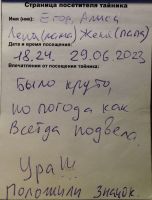 Страница посетителя тайника
Имя (ник): Егор, Алиса
Лена (мама) Женя (папа)
Дата и время посещения:
18.24. 29.06.2023
Впечатления от посещения тайника:
Было круто,
но погода как
всегда подвела.
Ура!!!
Положили значок.